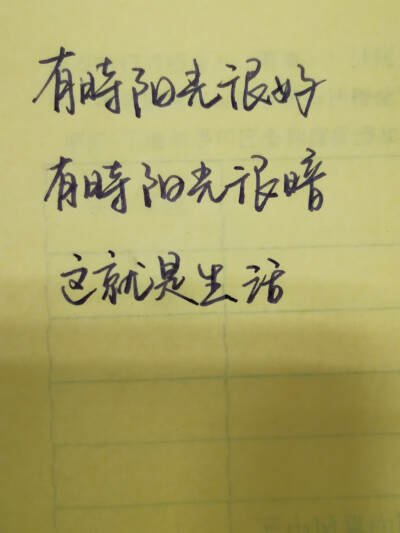 有時阳光很好
有時阳光很暗
这就是生活